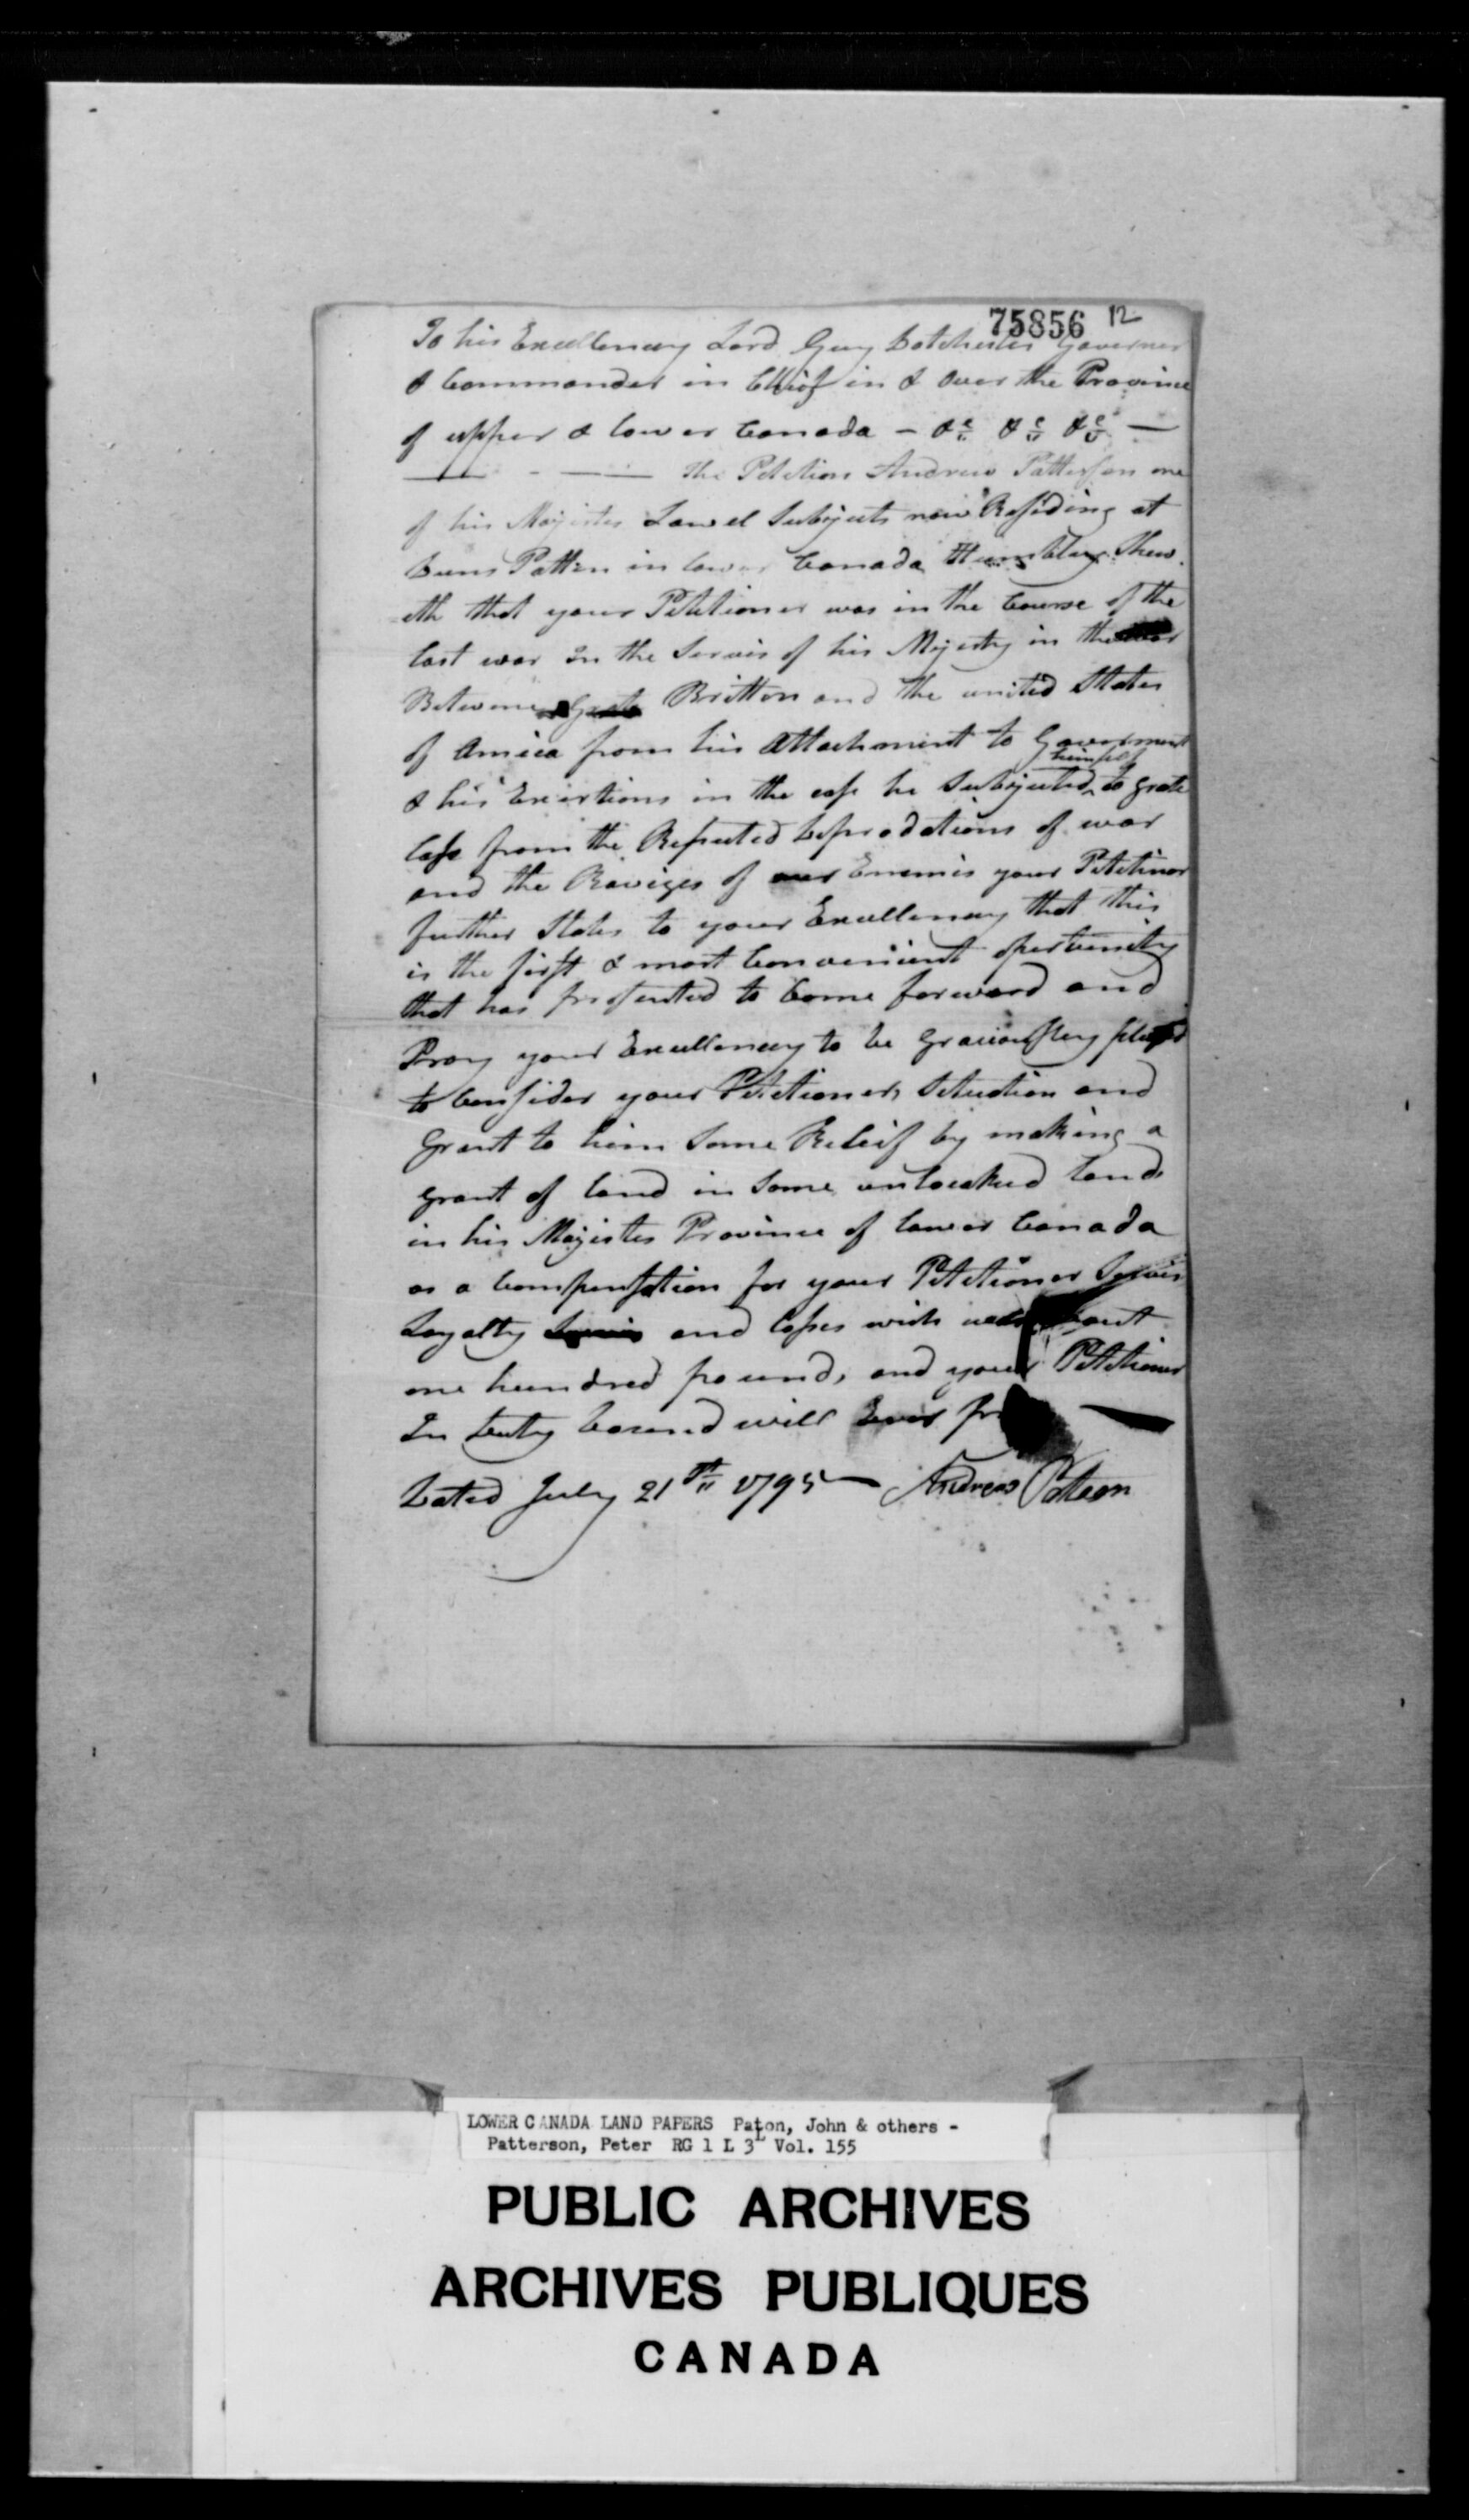 75856 12
To his Excellencey Lord Guy Dotchester Governer
& Commander in Chief in & Over the Province
of upper & lower Canada - &c &c &c —
The Petition Andrew Patterson one
of his Majistes Lawel Subjects now Residing at
Patten in lower Canada Humbley Shew
eth that your Petitioner was in the Course of the
last war In the Servis of his Majesty in the war
Betwene Grate Britton and the united States
of Amica from his Attachment to Goverment
& his Exertions in the case he Subjected himself to grate
loss from the Repeated Depredations of war
and the Raviges of our Enemies your Petetiner
further States to your Excellencey that this
is the first & most Convenient opertunity
that has presented to Come forward and
Pray your Excellencey to be Graciousley pleased
to Consider your Petetioners Situation and
Grant to him Some Releif by making a
grant of land in Some unlocated lands
in his Majistes Province of lower Canada
as a Compensation for your Petetioner Servis
Loyalty and losses wich
one hundred pounds, and your Petetioner
In Duty bound will Ever
Dated July 21st 1795 — Andrew Patteson
LOWER CANADA LAND PAPERS Paton, John & others -
Patterson, Peter RG 1 L 3L Vol. 155
PUBLIC ARCHIVES
ARCHIVES PUBLIQUES
CANADA